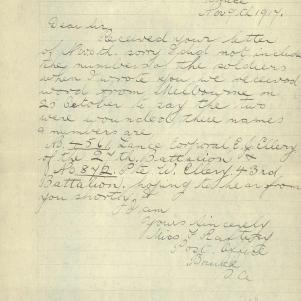 Nov 9th 1917.
Dear Sir
Received your letter
of Nov 5th. sorry I did not include
the numbers of the soldiers
when I wrote you, we received
word from Melbourne on
25 October to say the two
were wounded there names
& numbers are
No. 4561, Lance Corporal E. J. Ellery
of the 27th Battalion &
No 872. Pte W. Ellery 43rd
Battalion. hoping to hear from
you shortly
I am
Yours Sincerely
Miss
Post Office
S. A